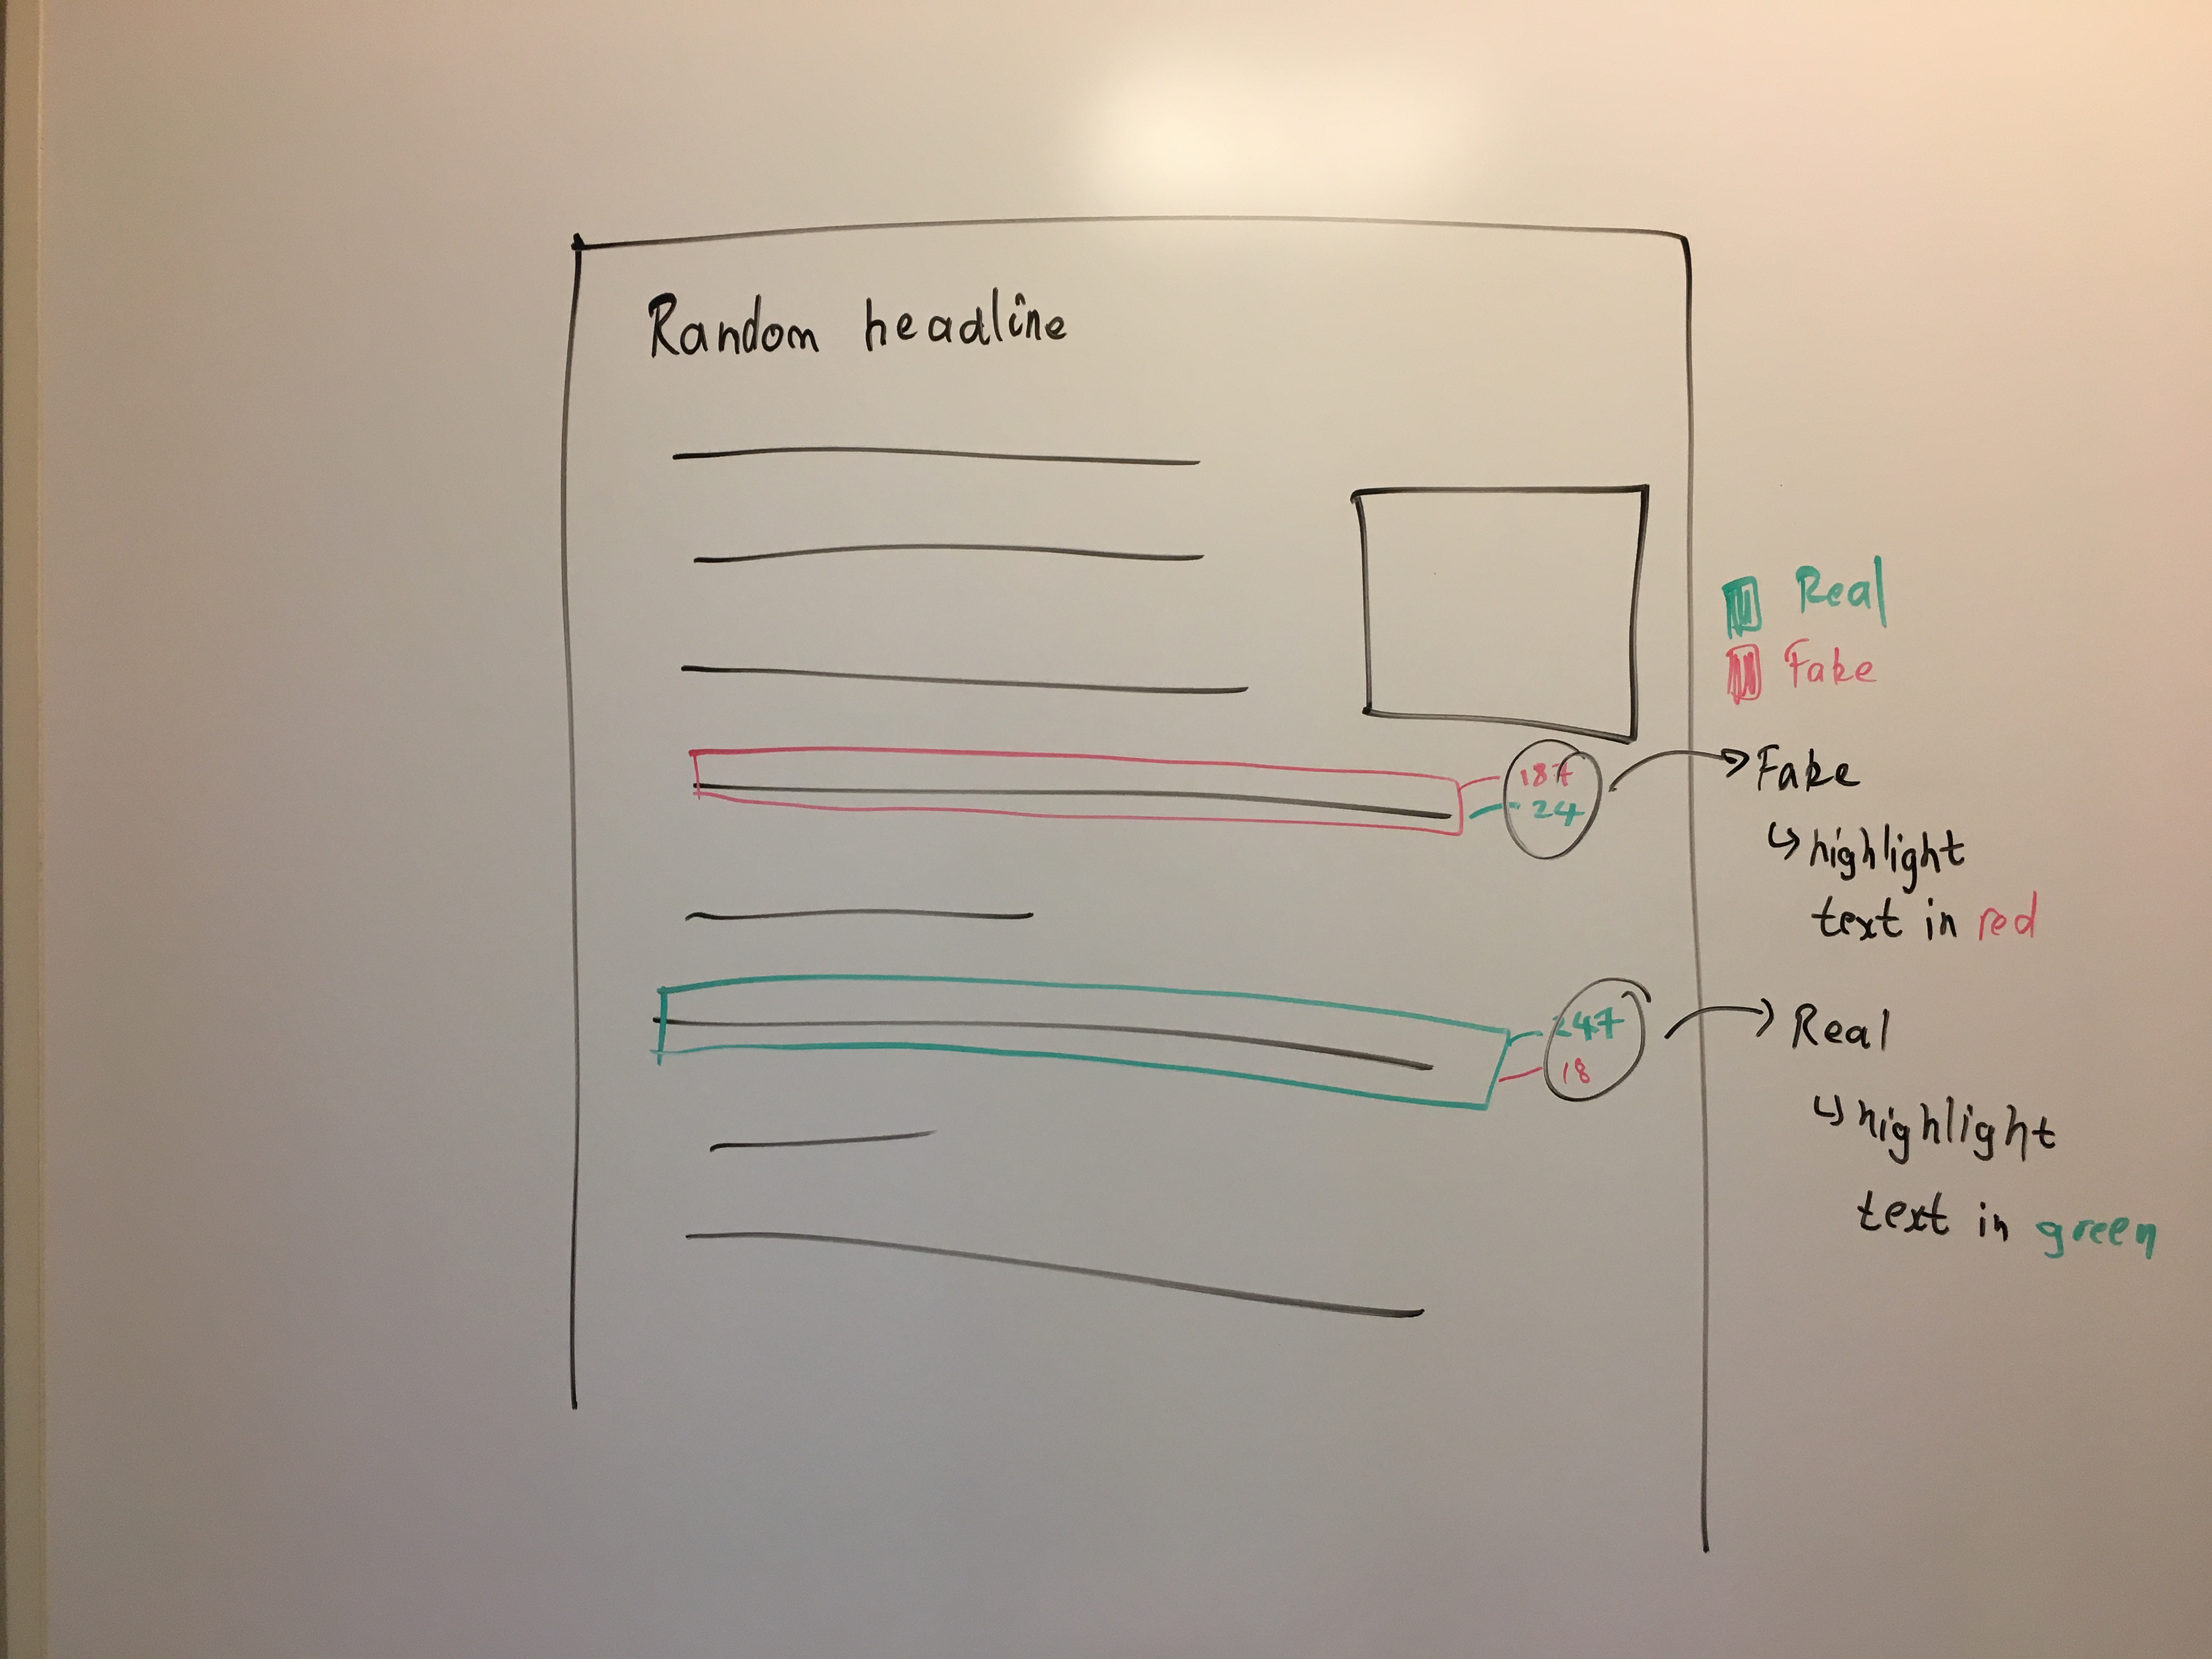 Random headline
Real
Fake
187
24
Fake
highlight
text in red
247
18
Real
highlight
text in green